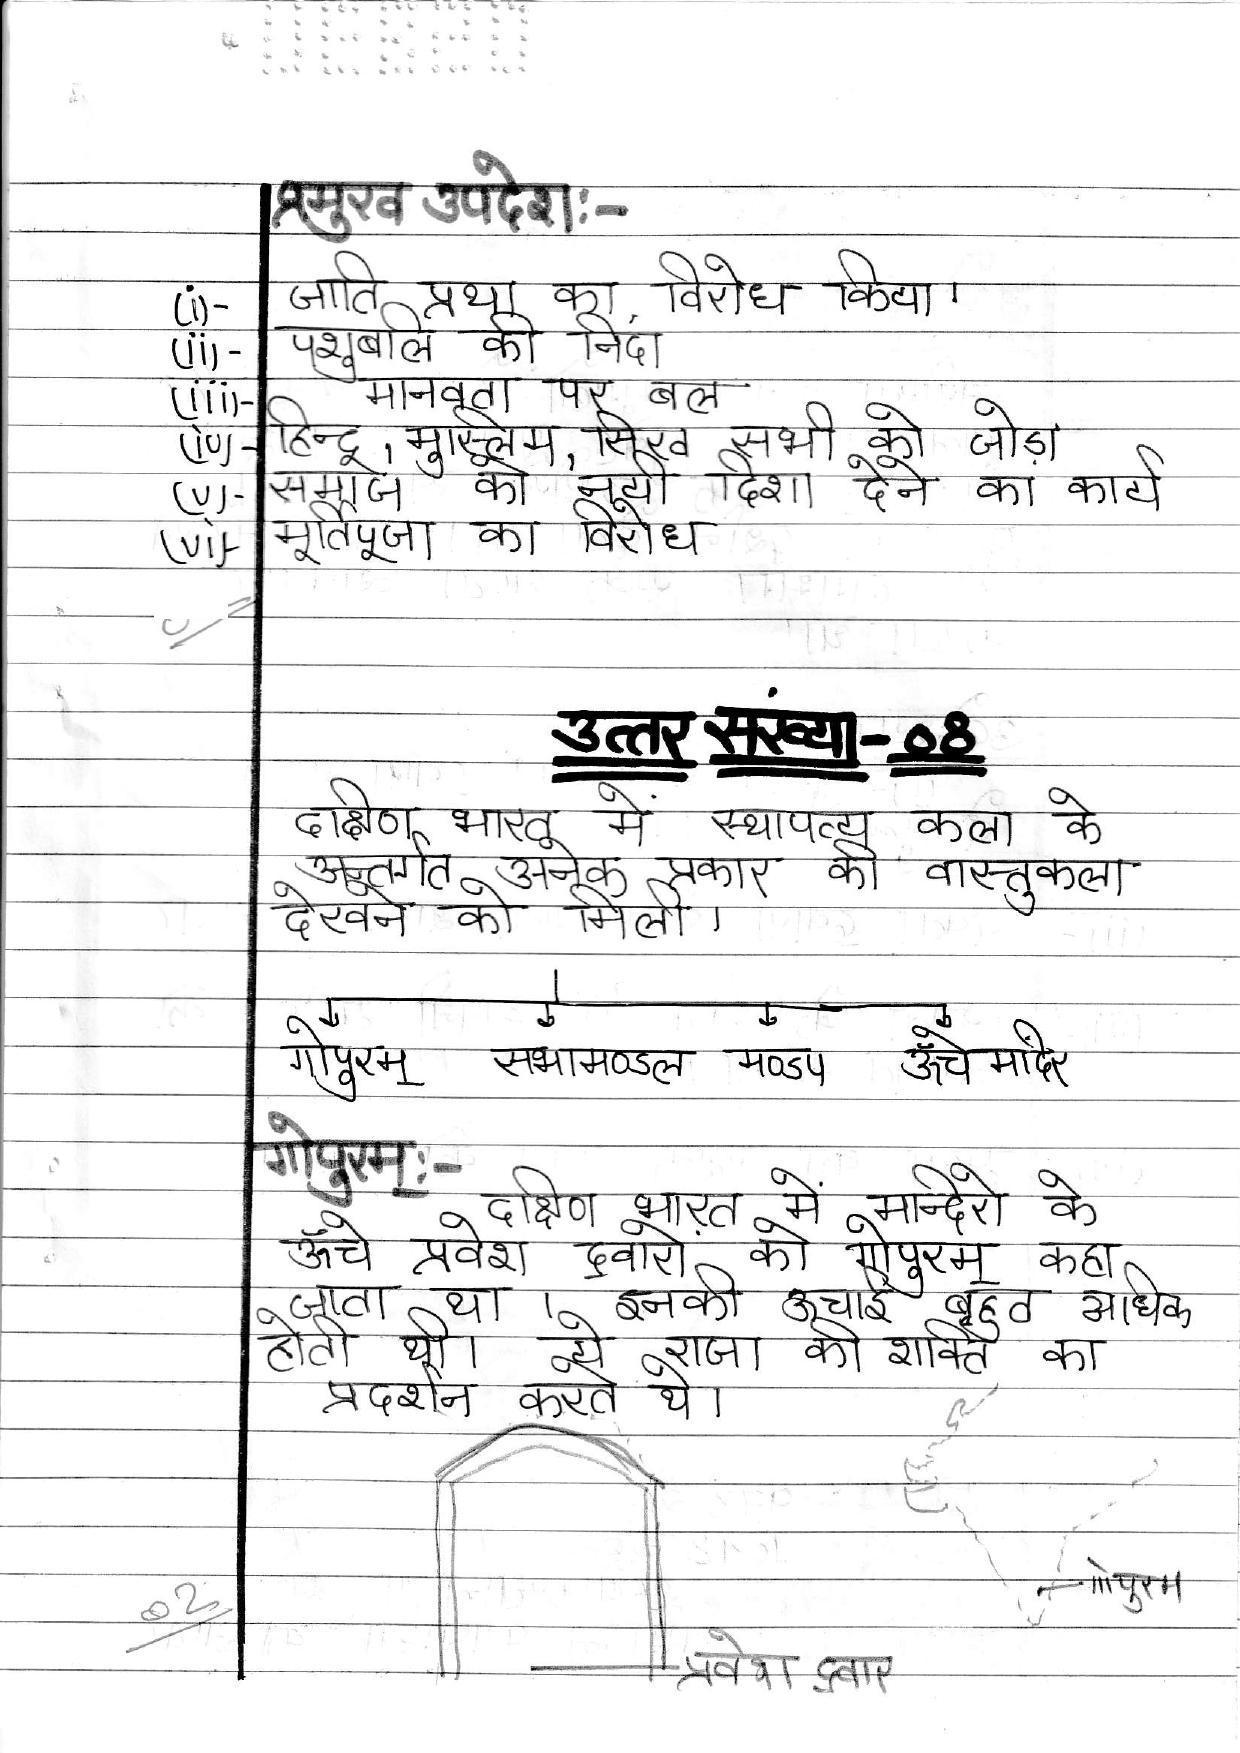 प्रमुख उपदेश:-
(i)- जाति प्रथा का विरोध किया।
(ii)- पशुबलि की निंदा
(iii)- मानवता पर बल
(iv)- हिन्दू, मुस्लिम, सिख सभी को जोड़ा
(v)- समाज को नयी दिशा देने का कार्य
(vi)- मूर्तिपूजा का विरोध
उत्तर संख्या - 08
दक्षिण भारत में स्थापत्य कला के
अन्तर्गत अनेक प्रकार की वास्तुकला
देखने को मिली।
गोपुरम् सभामण्डल मण्डप ऊँचे मंदिर
गोपुरम्:-
दक्षिण भारत में मन्दिरो के
ऊँचे प्रवेश द्वारो को गोपुरम् कहा
जाता था। इनकी ऊचाई बहुत अधिक
होती थी। ये राजा की शक्ति का
प्रदर्शन करते थे।
गोपुरम
02
प्रवेश द्वार